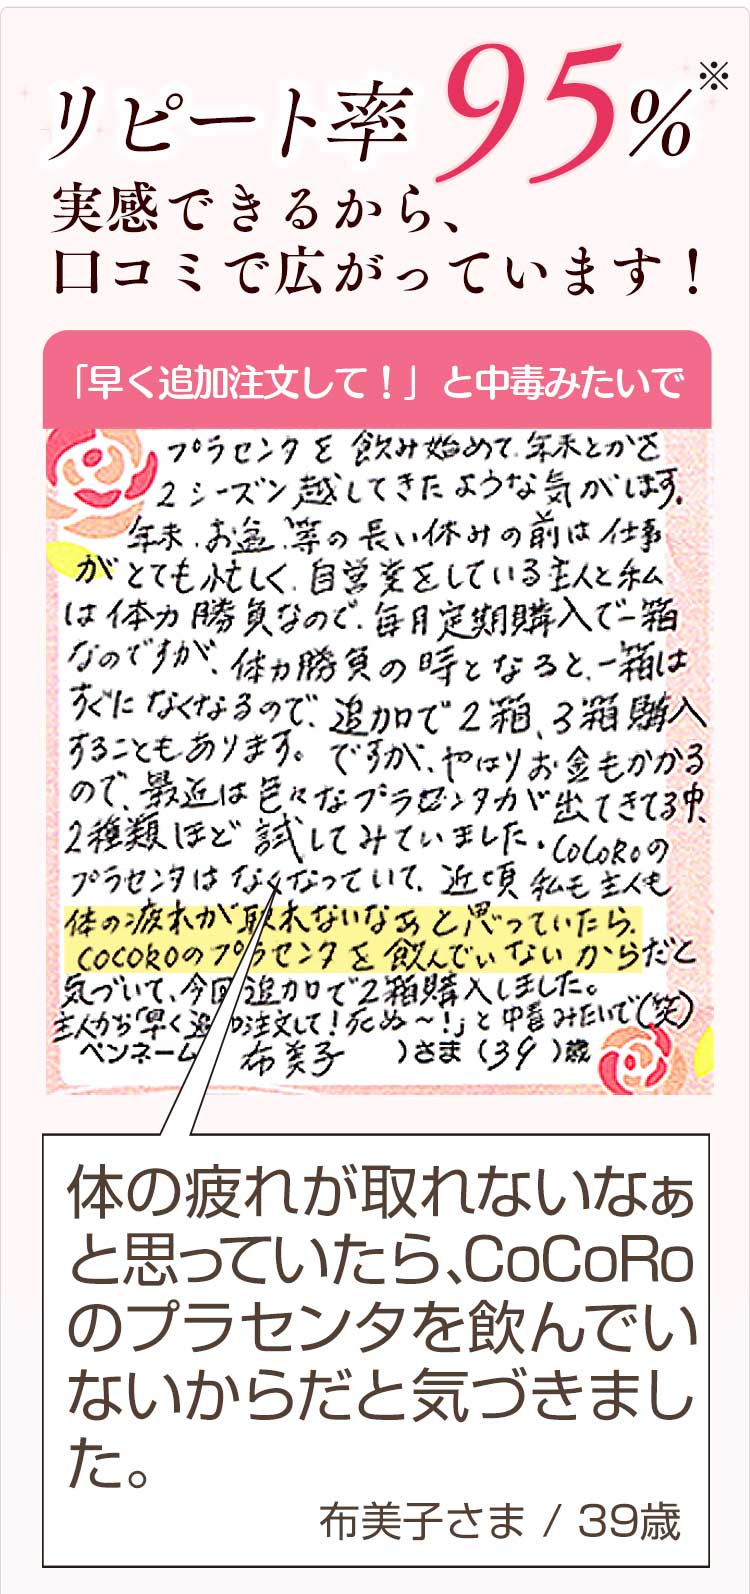 リピート率95%※
実感できるから、
口コミで広がっています！
「早く追加注文して！」と中毒みたいで
プラセンタを飲み始めて、年末とかを
2シーズン越してきたような気がします。
年末、お盆、等の長い休みの前は仕事
がとても忙しく、自営業をしている主人と私
は体力勝負なので、毎月定期購入で一箱
なのですが、体力勝負の時となると、一箱は
すぐになくなるので、追加で2箱、3箱購入
することもあります。ですが、やはりお金もかかる
ので、最近は色々なプラセンタが出てきてる中、
2種類ほど試してみていました。CoCoRoの
プラセンタはなくなっていて、近頃私も主人も
体の疲れが取れないなぁと思っていたら、
COCOROのプラセンタを飲んでいないからだと
気づいて、今回追加で2箱購入しました。
主人から「早く追加注文して！死ぬ〜！」と中毒みたいで(笑)
ペンネーム 布美子 )さま (39)歳
体の疲れが取れないなぁ
と思っていたら、CoCoRo
のプラセンタを飲んでい
ないからだと気づきまし
た。
布美子さま / 39歳